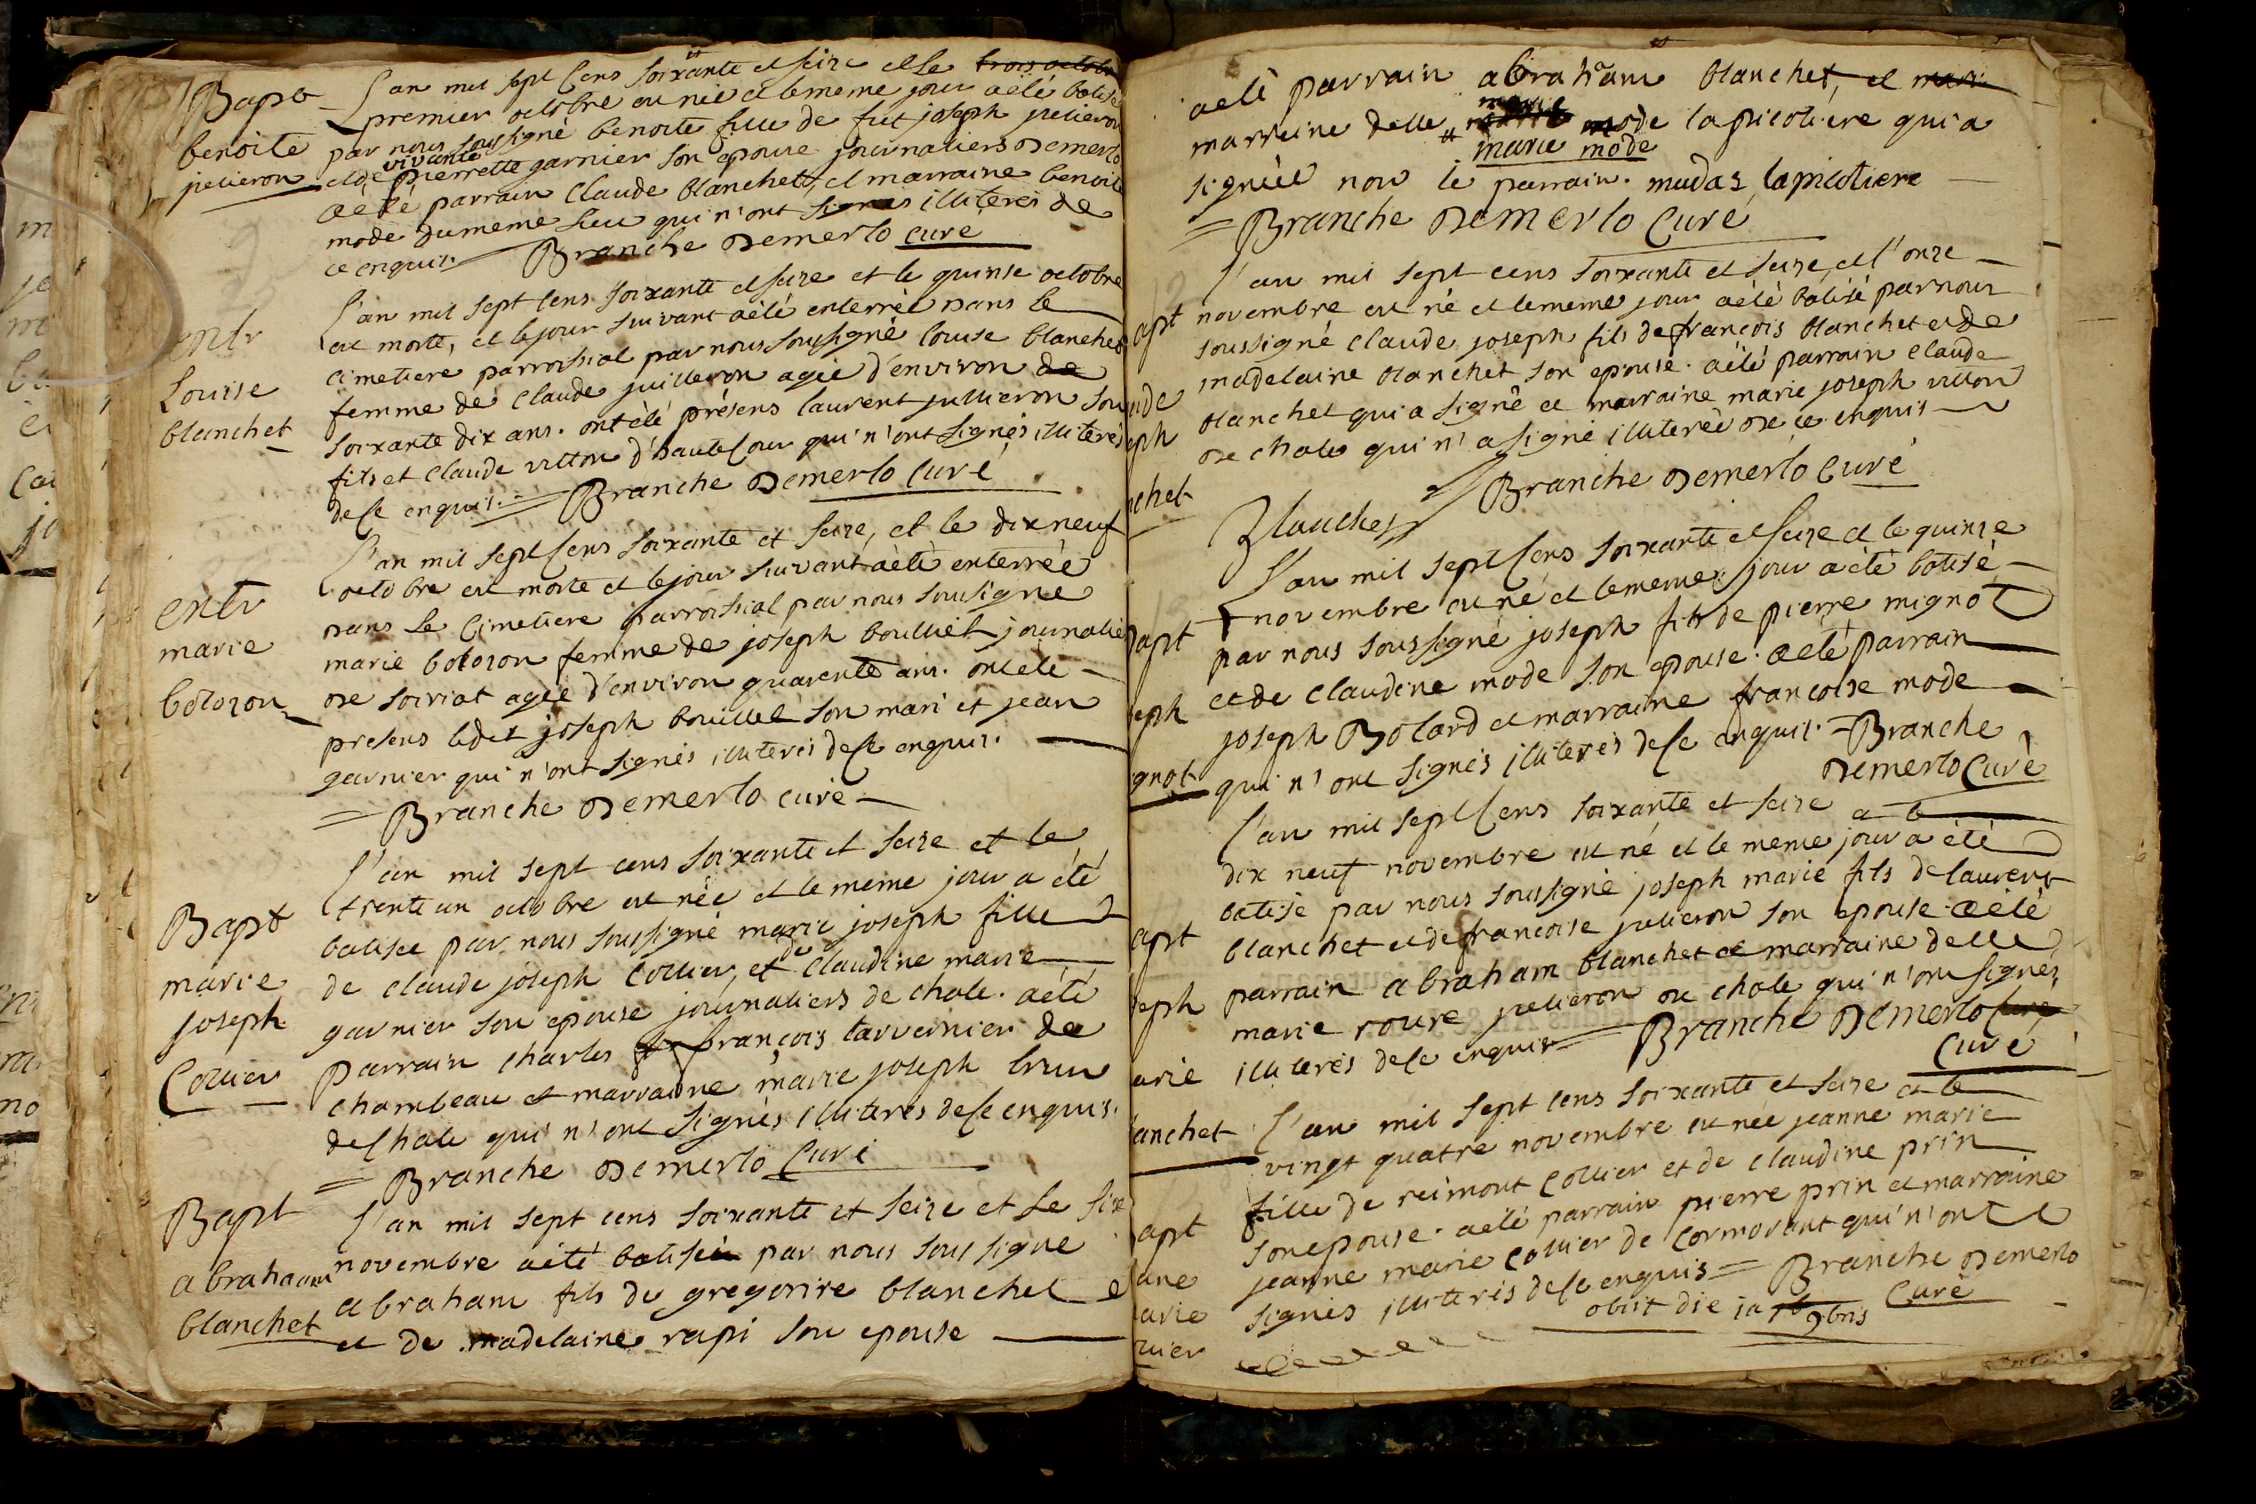 Bapt
benoite
julieron
L'an mil sept cens soixante et seize et le trois octobre
premier octobre est née et le meme jour a été batisée
par nous soussigné benoite fille de fut joseph julieron
et de vivante pierrette garnier son epouse journaliers de merlo
a été parrain claude blanchet, et marraine benoite
mode du meme lieu qui n'ont signés illiterés de
ce enquis. Branche de merlo curé
entr
Louise
blanchet
L'an mil sept cens soixante et seize et le quinse octobre
est morte, et le jour suivant a été enterrée dans le
cimetiere parroissial par nous soussigné louise blanchet
femme de claude juilleron agée d'environ de
soixante dix ans. ont été présens laurent jullieron son
fils et claude vitton d'hautecour qui n'ont signés illiterés
de ce enquis. Branche de merlo curé
entr
marie
bolozon
L'an mil sept cens soixante et seize, et le dix neuf
octobre est morte et le jour suivant a été enterrée
dans le cimetiere parroissial par nous sousigné
marie bolozon femme de joseph bouillet journalier
de soiriat agée d'environ quarente ans. ont été
presens ledit joseph bouillet son mari et jean
garnier qui n'ont signés illiterés de ce enquis.
Branche de merlo curé
Bapt
marie
joseph
Collier
L'an mil sept cens soixante et seize et le
trente un octobre est née et le meme jour a été
batisée par nous soussigné marie joseph fille
de claude joseph Collier, et de claudine marie
garnier son epouse journaliers de chale. a été
parrain charles françois tavernier de
chambeau et marraine marie joseph brun
de chale qui n'ont signés illiterés de ce enquis.
Branche de merlo curé
Bapt
abraham
blanchet
L'an mil sept cens soixante et seize et le six
novembre a été batisé par nous sous signé
abraham fils de gregorire blanchet
et de madelaine rapi son epouse
a été parrain abraham blanchet, et mari
marreine delle marie mode lapicotiere qui a
marie mode
signée non le parrain. madaz lapicotiere
Branche de merlo Curé
apt
ude
eph
nchet
L'an mil sept cens soixante et seize, et l'onze
novembre est né et le meme jour a été batisé par nous
soussigné claude joseph fils de françois blanchet et de
madelaine blanchet son epouse. a été parrain claude
blanchet qui a signé et marraine marie joseph vitton
de chale qui n'a signé illiterée de ce enquis
Blanchet Branche de merlo curé
Bapt
seph
ignot
L'an mil sept cens soixante et seize et le quinze
novembre est né et le meme jour a été batisé
par nous soussigné joseph fils de pierre mignot
et de claudine mode son epouse. a été parrain
joseph Bolard et marraine françoise mode
qui n'ont signés illiterés de ce enquis. Branche
de merlo Curé
apt
seph
arie
lanchet
L'an mil sept cens soixante et seize et le
dix neuf novembre est né et le meme jour a été
batisé par nous soussigné joseph marie fils de laurent
blanchet et de francoise julieron son epouse a été
parrain abraham blanchet et marraine delle
marie roure julieron de chale qui n'ont signés
illiterés de ce enquis Branche de merlo Curé
Curé
apt
ane
arie
llier
L'an mil sept cens soixante et seize et le
vingt quatre novembre est née jeanne marie
fille de reimont Collier et de claudine prin
son epouse. a été parrain pierre prin et marraine
jeanne marie collier de Cormorant qui n'ont
signés illiterés de ce enquis Branche de merlo
Curé
obiit die 9bris